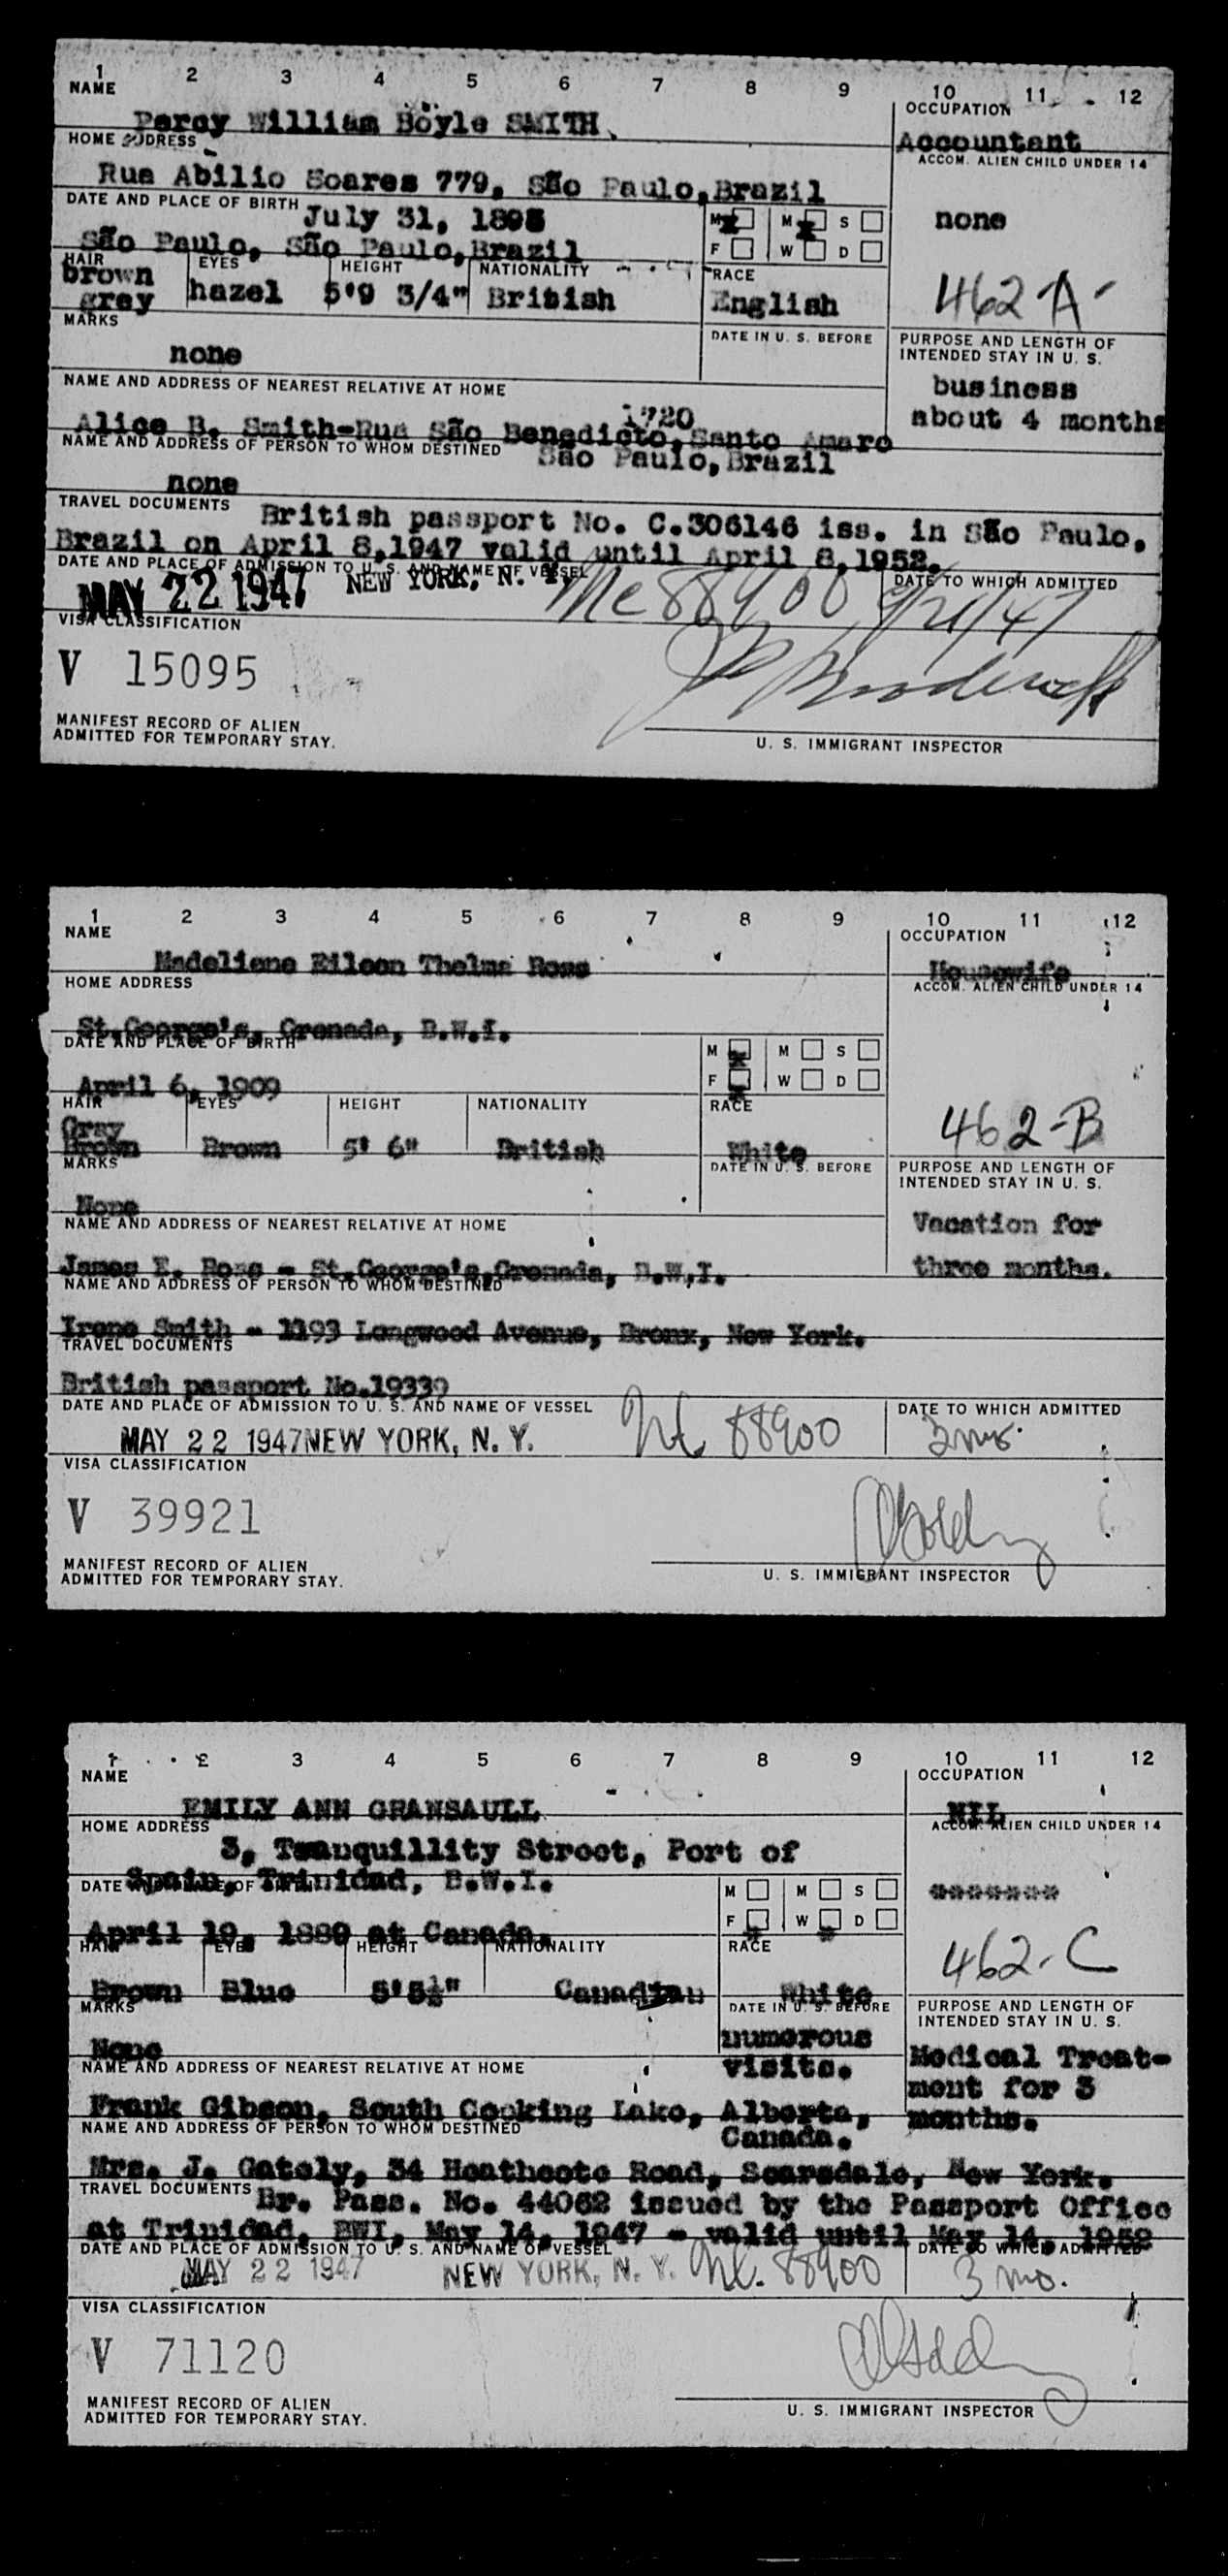 1 2 3 4 5 6 7 8 9 10 11 12
NAME OCCUPATION
Percy William Boyle SMITH Accountant
HOME ADDRESS ACCOM. ALIEN CHILD UNDER 14
Rua Abilio Soares 779, São Paulo, Brazil
DATE AND PLACE OF BIRTH July 31, M M S none
São Paulo, São Paulo, Brazil F W D
HAIR EYES HEIGHT NATIONALITY RACE
brown grey hazel 5'9 3/4" British English 462-A
MARKS DATE IN U. S. BEFORE PURPOSE AND LENGTH OF INTENDED STAY IN U. S.
none
NAME AND ADDRESS OF NEAREST RELATIVE AT HOME business
1720 about 4 months
Alice B. Smith-Rua São Benedicto, Santo Amaro
NAME AND ADDRESS OF PERSON TO WHOM DESTINED São Paulo, Brazil
none
TRAVEL DOCUMENTS British passport No. C.306146 iss. in São Paulo,
Brazil on April 8,1947 valid until April 8,1952.
DATE AND PLACE OF ADMISSION TO U. S. AND NAME OF VESSEL DATE TO WHICH ADMITTED
MAY 22 1947 NEW YORK, N. Y. Nc 88900 9/21/47
VISA CLASSIFICATION
V 15095
MANIFEST RECORD OF ALIEN
ADMITTED FOR TEMPORARY STAY.
U. S. IMMIGRANT INSPECTOR
1 2 3 4 5 6 7 8 9 10 11 12
NAME OCCUPATION
Madeliene Eileen Thelma Ross Housewife
HOME ADDRESS ACCOM. ALIEN CHILD UNDER 14
St.George's, Grenada, B.W.I.
DATE AND PLACE OF BIRTH M M S
April 6, 1909 F W D
HAIR EYES HEIGHT NATIONALITY RACE
Gray
Brown Brown 5' 6" British White 462-B
MARKS DATE IN U. S. BEFORE PURPOSE AND LENGTH OF INTENDED STAY IN U. S.
None
NAME AND ADDRESS OF NEAREST RELATIVE AT HOME Vacation for
James E. Ross - St.George's,Grenada, B.W.I. three months.
NAME AND ADDRESS OF PERSON TO WHOM DESTINED
Irene Smith - 1193 Longwood Avenue, Bronx, New York.
TRAVEL DOCUMENTS
British passport No.19339
DATE AND PLACE OF ADMISSION TO U. S. AND NAME OF VESSEL DATE TO WHICH ADMITTED
MAY 22 1947 NEW YORK, N. Y. Nc 88900 3 mos.
VISA CLASSIFICATION
V 39921
MANIFEST RECORD OF ALIEN
ADMITTED FOR TEMPORARY STAY.
U. S. IMMIGRANT INSPECTOR
1 2 3 4 5 6 7 8 9 10 11 12
NAME OCCUPATION
EMILY ANN GRANSAULL NIL
HOME ADDRESS ACCOM. ALIEN CHILD UNDER 14
3, Tranquillity Street, Port of
Spain, Trinidad, B.W.I.
DATE AND PLACE OF BIRTH M M S
April 19, 1889 at Canada. F W D
HAIR EYES HEIGHT NATIONALITY RACE 462-C
Brown Blue 5'5½" Canadian White
MARKS DATE IN U. S. BEFORE PURPOSE AND LENGTH OF INTENDED STAY IN U. S.
None numerous visits.
NAME AND ADDRESS OF NEAREST RELATIVE AT HOME Medical Treat-
ment for 3
months.
Frank Gibson, South Cooking Lake, Alberta,
NAME AND ADDRESS OF PERSON TO WHOM DESTINED Canada.
Mrs. J. Gately, 34 Heathcote Road, Scarsdale, New York.
TRAVEL DOCUMENTS Br. Pass. No. 44062 issued by the Passport Office
at Trinidad, BWI, May 14, 1947 - valid until May 14, 1952
DATE AND PLACE OF ADMISSION TO U. S. AND NAME OF VESSEL DATE TO WHICH ADMITTED
MAY 22 1947 NEW YORK, N. Y. Nc. 88900 3 mo.
VISA CLASSIFICATION
V 71120
MANIFEST RECORD OF ALIEN
ADMITTED FOR TEMPORARY STAY.
U. S. IMMIGRANT INSPECTOR